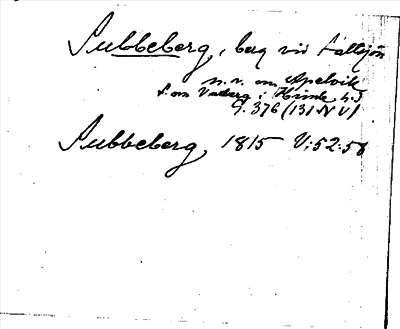 Subbeberg, berg vid Saltsjön
n.v. om Apelvik
S. om Varberg i Himle hd
G. 376 (131 N V)
Subbeberg 1815 V:52:58